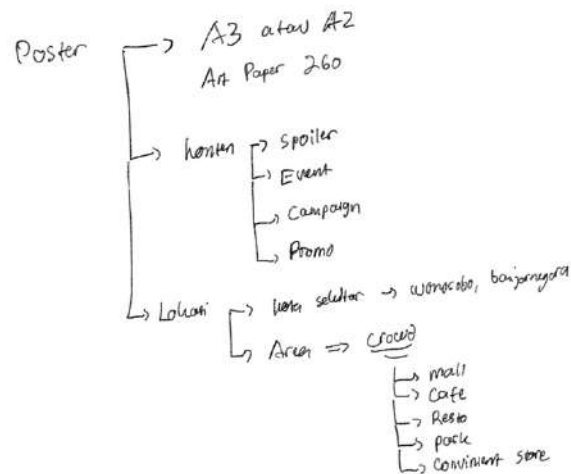 Poster
A3 atau A2
Art Paper 260
konten
Spoiler
Event
Campaign
Promo
Lokasi
kota sekitar → wonosobo, banjarnegara
Area ⇒ crowd
mall
Cafe
Resto
park
Convinient store